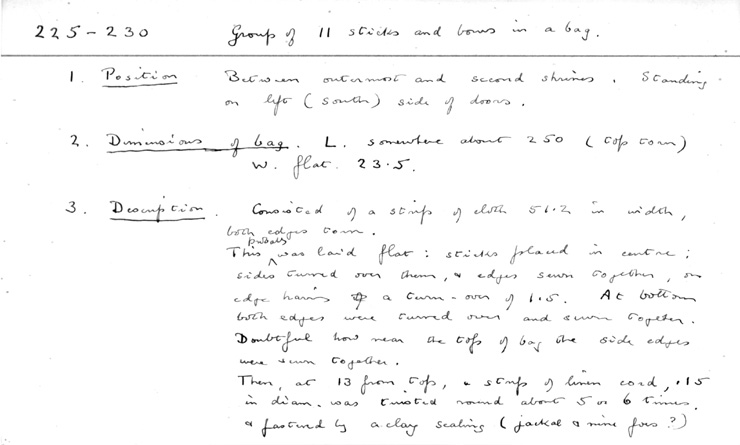 225 - 230 Group of 11 sticks and bows in a bag.
1. Position Between outermost and second shrines. Standing
on left (south) side of doors.
2. Dimensions of bag. L. somewhere about 250 (top torn)
W. flat. 23.5.
3. Description. Consisted of a strip of cloth 51.2 in width,
both edges torn.
probably
This was laid flat: sticks placed in centre;
sides turned over them, & edges sewn together, one
edge having a turn-over of 1.5. At bottom
both edges were turned over and sewn together.
Doubtful how near the top of bag the side edges
were sewn together.
Then, at 13 from top, a strip of linen cord, .15
in diam. was twisted round about 5 or 6 times,
& fastened by a clay sealing (jackal & nine foes?)